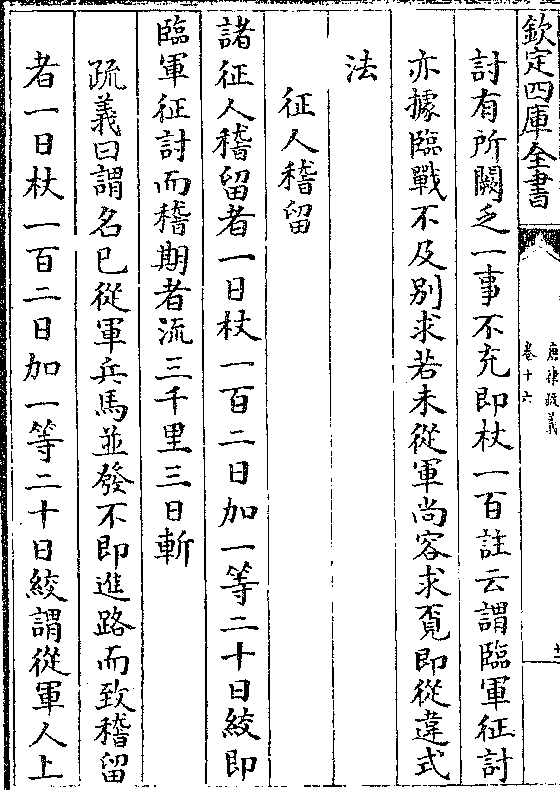 欽定四庫全書
唐律疏義
卷十六
討有所闕乏一事不充即杖一百註云謂臨軍征討
亦據臨戰不及別求若未從軍尚容求覔即從違式
法
征人稽留
諸征人稽留者一日杖一百二日加一等二十日絞即
臨軍征討而稽期者流三千里三日斬
疏義曰謂名已從軍兵馬並發不即進路而致稽留
者一日杖一百二日加一等二十日絞謂從軍人上